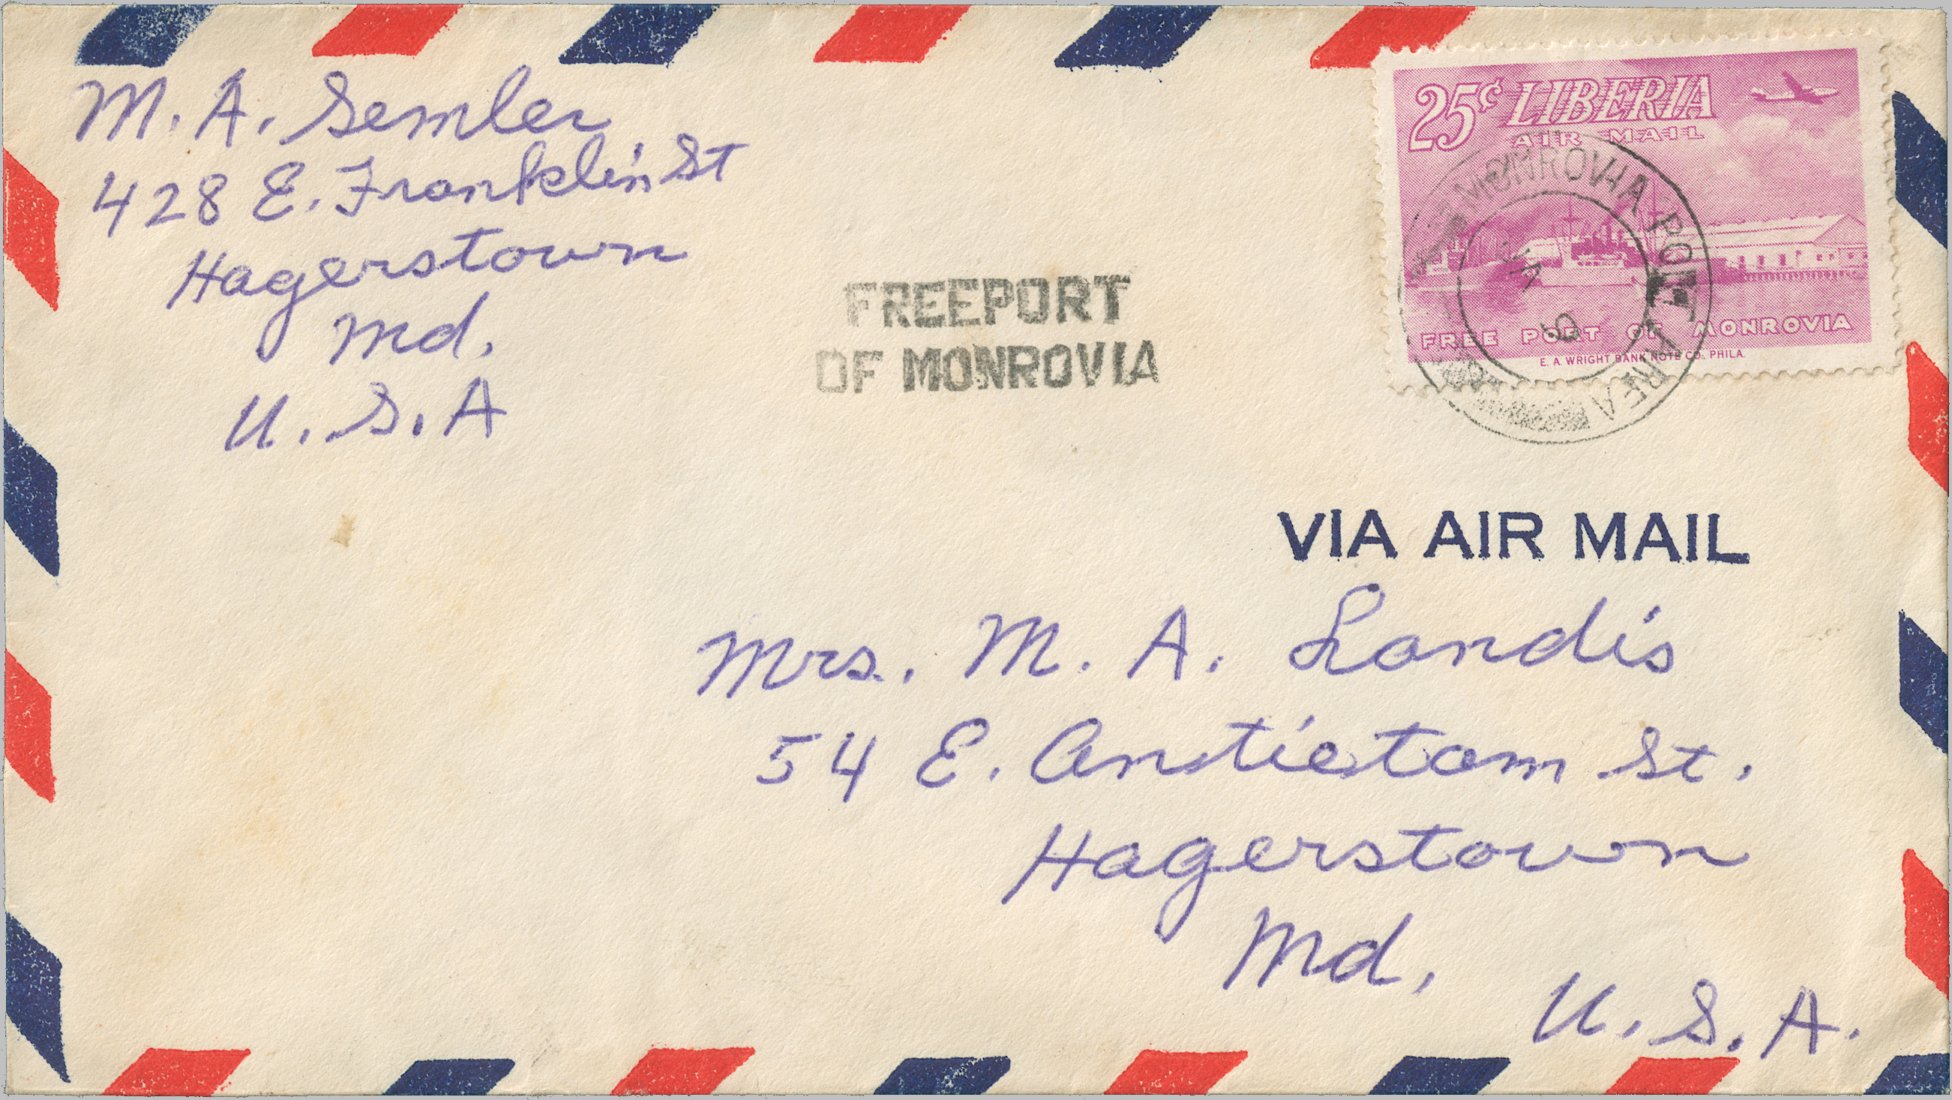 M. A. Semler
428 E. Franklin St
Hagerstown
Md.
U. S. A
FREEPORT
OF MONROVIA
25¢ LIBERIA
AIR MAIL
MONROVIA PORT AREA
FREE PORT OF MONROVIA
E. A. WRIGHT BANK NOTE CO., PHILA.
VIA AIR MAIL
Mrs. M. A. Landis
54 E. Antietam St.
Hagerstown
Md.
U. S. A.